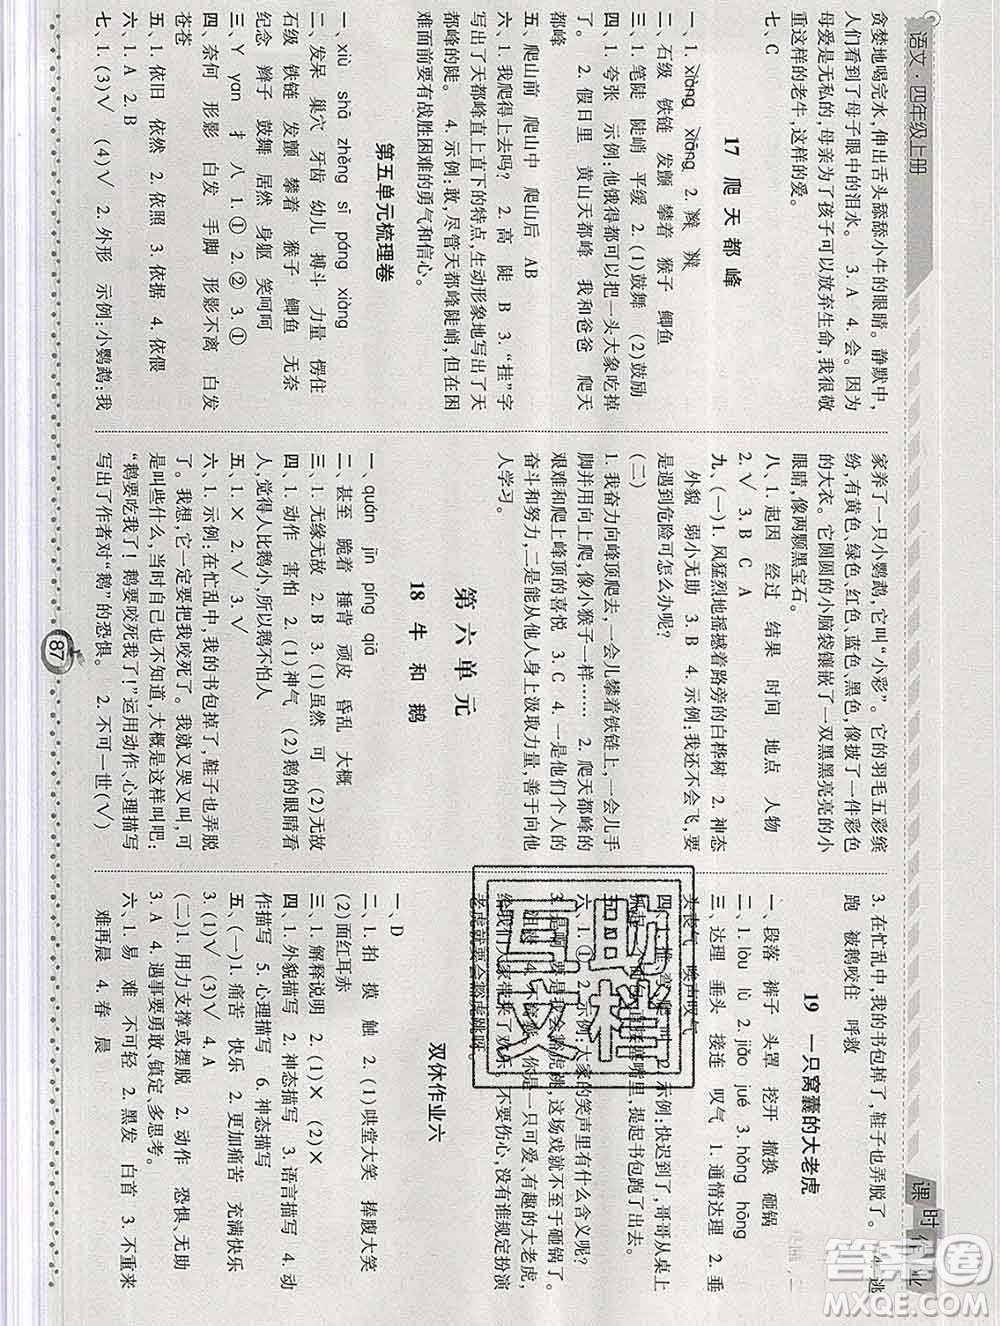 语文·四年级上册
课时作业
贪婪地喝完水,伸出舌头舔舔小牛的眼睛。静默中,
人们看到了母子眼中的泪水。 3. A 4. 会。因为
母爱是无私的,母亲为了孩子可以放弃生命,我很敬
重这样的老牛,这样的爱。
七、C
17 爬天都峰
一、1. xiàng xiāng 2. 辫 辨
二、石级 铁链 发颤 攀着 猴子 鲫鱼
三、1. 笔陡 陡峭 平缓 2. (1)鼓舞 (2)鼓励
四、1. 夸张 示例:他饿得都可以把一头大象吃掉
了。 2. 假日里 黄山天都峰 我和爸爸 爬天
都峰
五、爬山前 爬山中 爬山后 AB
六、1. 我爬得上去吗? 2. 高 陡 B 3. “挂”字
写出了天都峰直上直下的特点,生动形象地写出了天
都峰的陡。 4. 示例:敢,尽管天都峰陡峭,但在困
难面前要有战胜困难的勇气和信心。
第五单元梳理卷
一、xiù shā zhěng sī páng xiàng
二、发呆 巢穴 牙齿 幼儿 搏斗 力量 愣住
石级 铁链 发颤 攀着 猴子 鲫鱼 无奈
纪念 辫子 鼓舞 居然 身躯 笑呵呵
三、Y yan 扌 八 1. ① 2. ② 3. ①
四、奈何 形影 白发 手脚 形影不离 白发
苍苍
五、1. 依旧 依然 2. 依照 3. 依据 4. 依偎
六、1. A 2. B
七、1. (3)√ (4)√ 2. 外形 示例:小鹦鹉:我
家养了一只小鹦鹉,它叫“小彩”。它的羽毛五彩缤
纷,有黄色、绿色、红色、蓝色、黑色,像披了一件彩色
的大衣。它圆圆的小脑袋镶嵌了一双黑黑亮亮的小
眼睛,像两颗黑宝石。
八、1. 起因 经过 结果 时间 地点 人物
2. √ 3. B C A
九、(一)1. 风猛烈地摇撼着路旁的白桦树 2. 神态
外貌 弱小无助 3. B 4. 示例:我还不会飞,要
是遇到危险可怎么办呢?
(二)
1. 我奋力向峰顶爬去,一会儿攀着铁链上,一会儿手
脚并用向上爬,像小猴子一样…… 2. 爬天都峰的
艰难和爬上峰顶的喜悦 3. C 4. 一是他们个人的
奋斗和努力,二是能从他人身上汲取力量,善于向他
人学习。
第六单元
18 牛和鹅
一、quán jīn píng qiā
二、甚至 跪着 捶背 顽皮 昏乱 大概
三、1. 无缘无故 2. B 3. (1)虽然 可 (2)无故
四、1. 动作 害怕 2. (1)神气 (2)鹅的眼睛看
人,觉得人比鹅小,所以鹅不怕人
五、1. × 2. √ 3. √
六、1. 示例:在忙乱中,我的书包掉了,鞋子也弄脱
了。我想,它一定要把我咬死了。我就又哭又叫,可
是叫些什么,当时自己也不知道,大概是这样叫吧:
“鹅要吃我了!鹅要咬死我了!”运用动作、心理描写
写出了作者对“鹅”的恐惧。 2. 不可一世(√)
3. 在忙乱中,我的书包掉了,鞋子也弄脱了。 4. 逃
跑 被鹅咬住 呼救
19 一只窝囊的大老虎
一、段落 裤子 头罩 挖开 撤换 砸锅
二、1. lòu lù 2. jiǎo jué 3. hǒng hōng
三、达理 垂头 接连 叹气 1. 通情达理 2. 垂
头丧气 唉声叹气
2. 示例:快迟到了,哥哥从桌上
嘴里,提起书包跑了出去。
六、1. ① 2. 示例:大家的笑声里有什么含义呢?
我会豁虎跳,这场戏就不至于砸锅了。
4. 不窝囊。你是一只可爱、有趣的大老虎,
给我们大家带来了欢乐。不要伤心,没有谁规定扮演
老虎就要会豁虎跳呀。
双休作业六
一、D
二、1. 拍 摸 触 2. (1)哄堂大笑 捧腹大笑
(2)面红耳赤
三、1. 解释说明 2. (1)× (2)×
四、1. 外貌描写 2. 神态描写 3. 语言描写 4. 动
作描写 5. 心理描写 6. 神态描写
五、(一)1. 痛苦 快乐 2. 更加痛苦 充满快乐
3. (1)√ (3)√ 4. A
(二)1. 用力支撑或摆脱 2. 动作 恐惧、无助
3. A 4. 遇事要勇敢、镇定、多思考。
六、1. 易 难 不可轻 2. 黑发 白首 3. 不重来
难再晨 4. 春 晨
87
答案圈
MXQE.COM